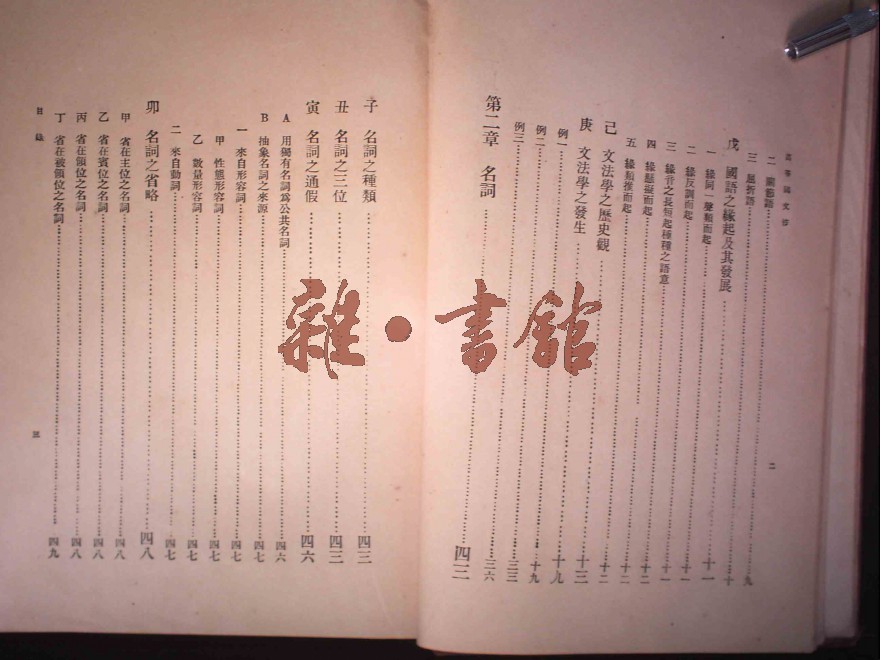 高等國文法
二 關節語……九
三 屈折語……十
戊 國語之緣起及其發展……十一
一 緣同一聲類而起……十一
二 緣反訓而起……十一
三 緣音之長短起種種之語意……十一
四 緣懸擬而起……十二
五 緣類推而起……十二
己 文法學之歷史觀……十二
庚 文法學之發生……十三
例一……十九
例二……十九
例三……三三
三六
第二章 名詞……四三
二
子 名詞之種類……四三
丑 名詞之三位……四三
寅 名詞之通假……四六
A 用獨有名詞爲公共名詞……四六
B 抽象名詞之來源……四七
一 來自形容詞……四七
甲 性態形容詞……四七
乙 數量形容詞……四七
二 來自動詞……四七
卯 名詞之省略……四八
甲 省在主位之名詞……四八
乙 省在賓位之名詞……四八
丙 省在領位之名詞……四八
丁 省在被領位之名詞……四九
目錄
三
雜·書館